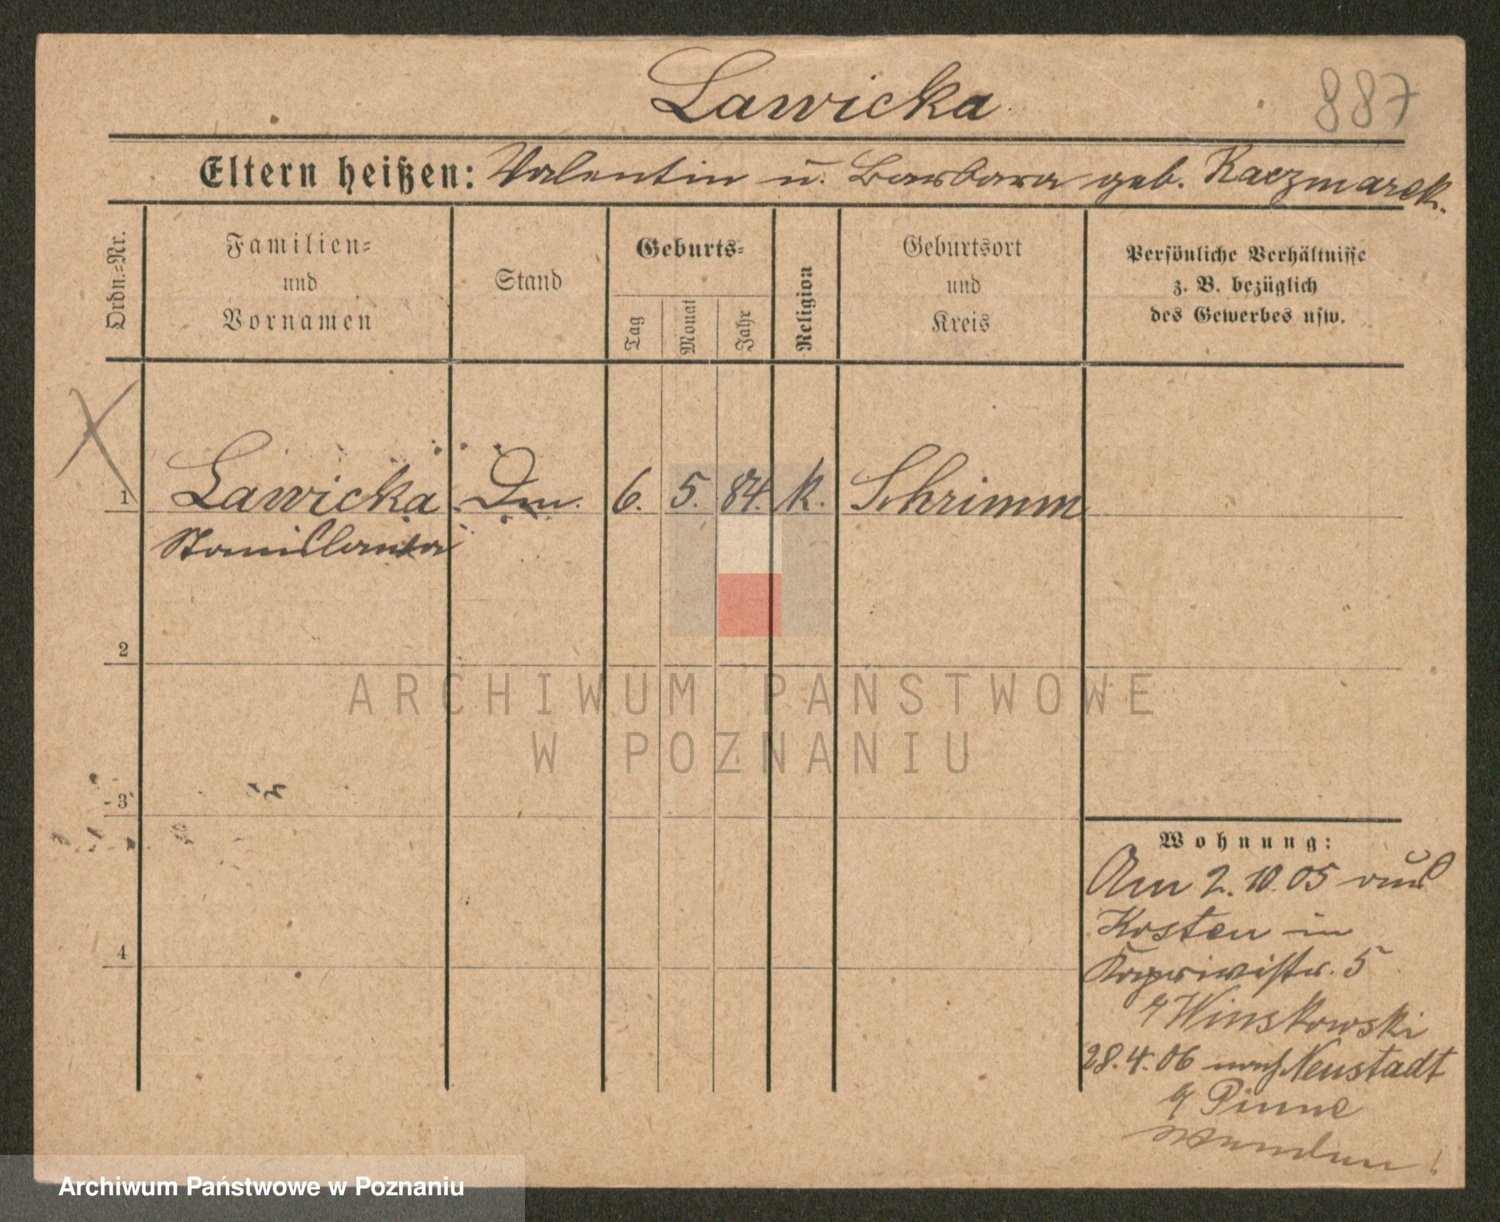 Lawicka
887
Eltern heißen: Valentin u. Barbara geb. Kaczmarek.
Ordn.-Nr.
Familien-
und
Vornamen
Stand
Geburts-
Tag
Monat
Jahr
Religion
Geburtsort
und
Kreis
Persönliche Verhältnisse
z. B. bezüglich
des Gewerbes usw.
1 Lawicka Dm. 6. 5. 84. k. Schrimm
Stanislawa
2
ARCHIWUM PAŃSTWOWE
W POZNANIU
3
4
Wohnung:
Am 2.10.05 aus
Kosten in
5
Winskowski
28.4.06 nach Neustadt
Pinne
Archiwum Państwowe w Poznaniu